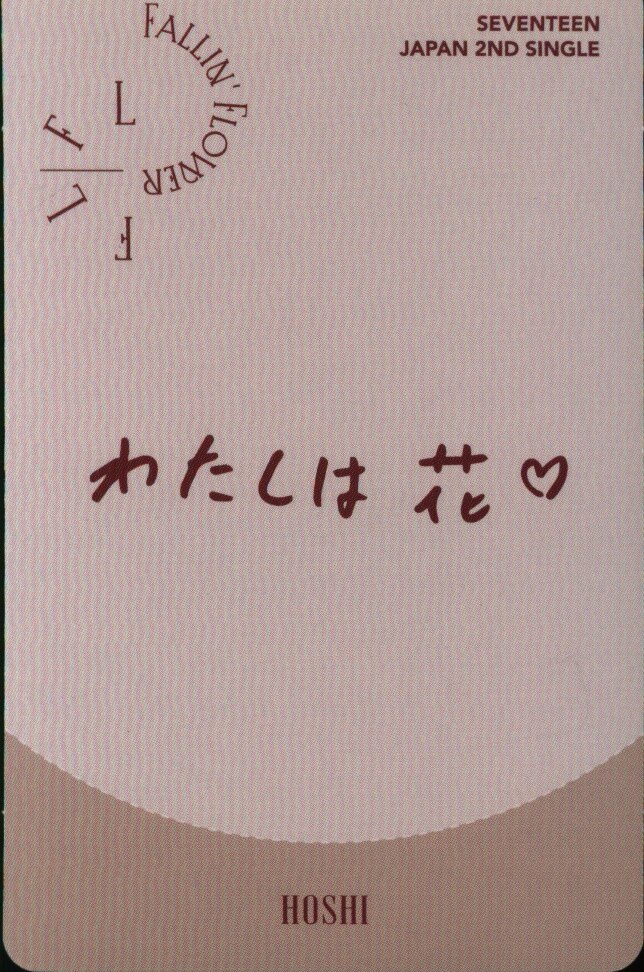 FALLIN' FLOWER
SEVENTEEN
JAPAN 2ND SINGLE
F L
F L
わたしは 花♡
HOSHI